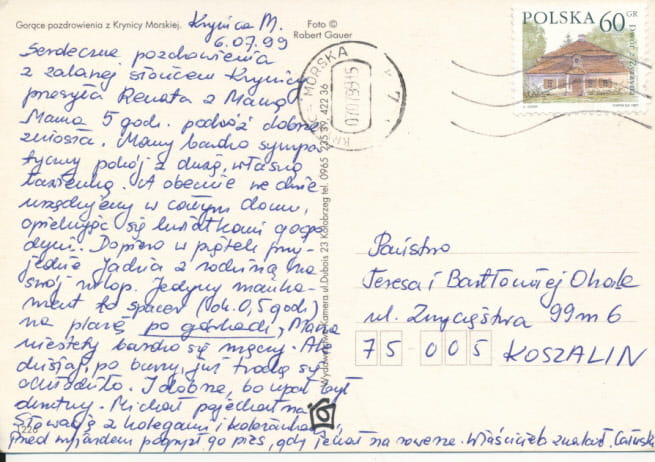 Gorące pozdrowienia z Krynicy Morskiej.
Krynica M.
6.07.99
Foto ©
Robert Gauer
Serdeczne pozdrowienia
z zalanej słońcem Krynicy
przesyła Renata z Mamą
Mama 5 godz. podróż dobrze
zniosła. Mamy bardzo sympa-
tyczny pokój z dużą, własną
łazienką. A obecnie we dwie
urzędujemy w całym domu,
opiekując się kwiatkami gospo-
dyni. Dopiero w piątek przy-
jedzie Jadzia z rodziną na
swój urlop. Jedyny manka-
ment to spacer (ok. 0,5 godz)
na plażę po górkach, Mama
niestety bardzo się męczy. Ale
dzisiaj, po burzy, już trochę się
ochłodziło. I dobrze, bo upał był
okrutny. Michał pojechał na
Słowację z kolegami i koleżankami,
przed wyjazdem pogryzł go pies, gdy jechał na rowerze. Właściciel znalazł.
1226
Wydawnictwo Kamera ul. Dubois 23 Kołobrzeg tel. 0965 235 39, 422 36
MORSKA
POLSKA 60 GR
Państwo
Teresa i Bartłomiej
ul. Zwycięstwa 99 m 6
75-005 KOSZALIN